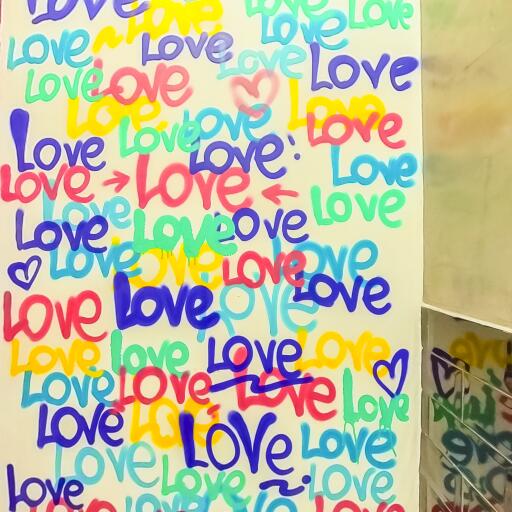 Love Love Love Love
Love Love Love
Love Love Love
Love Love
Love Love
Love Love Love
Love Love Love
Love → Love ←
Love Love
Love Love Love
Love Love Love Love
Love Love Love Love
Love Love Love Love
Love Love Love Love
Love Love Love Love
Love Love Love
Love